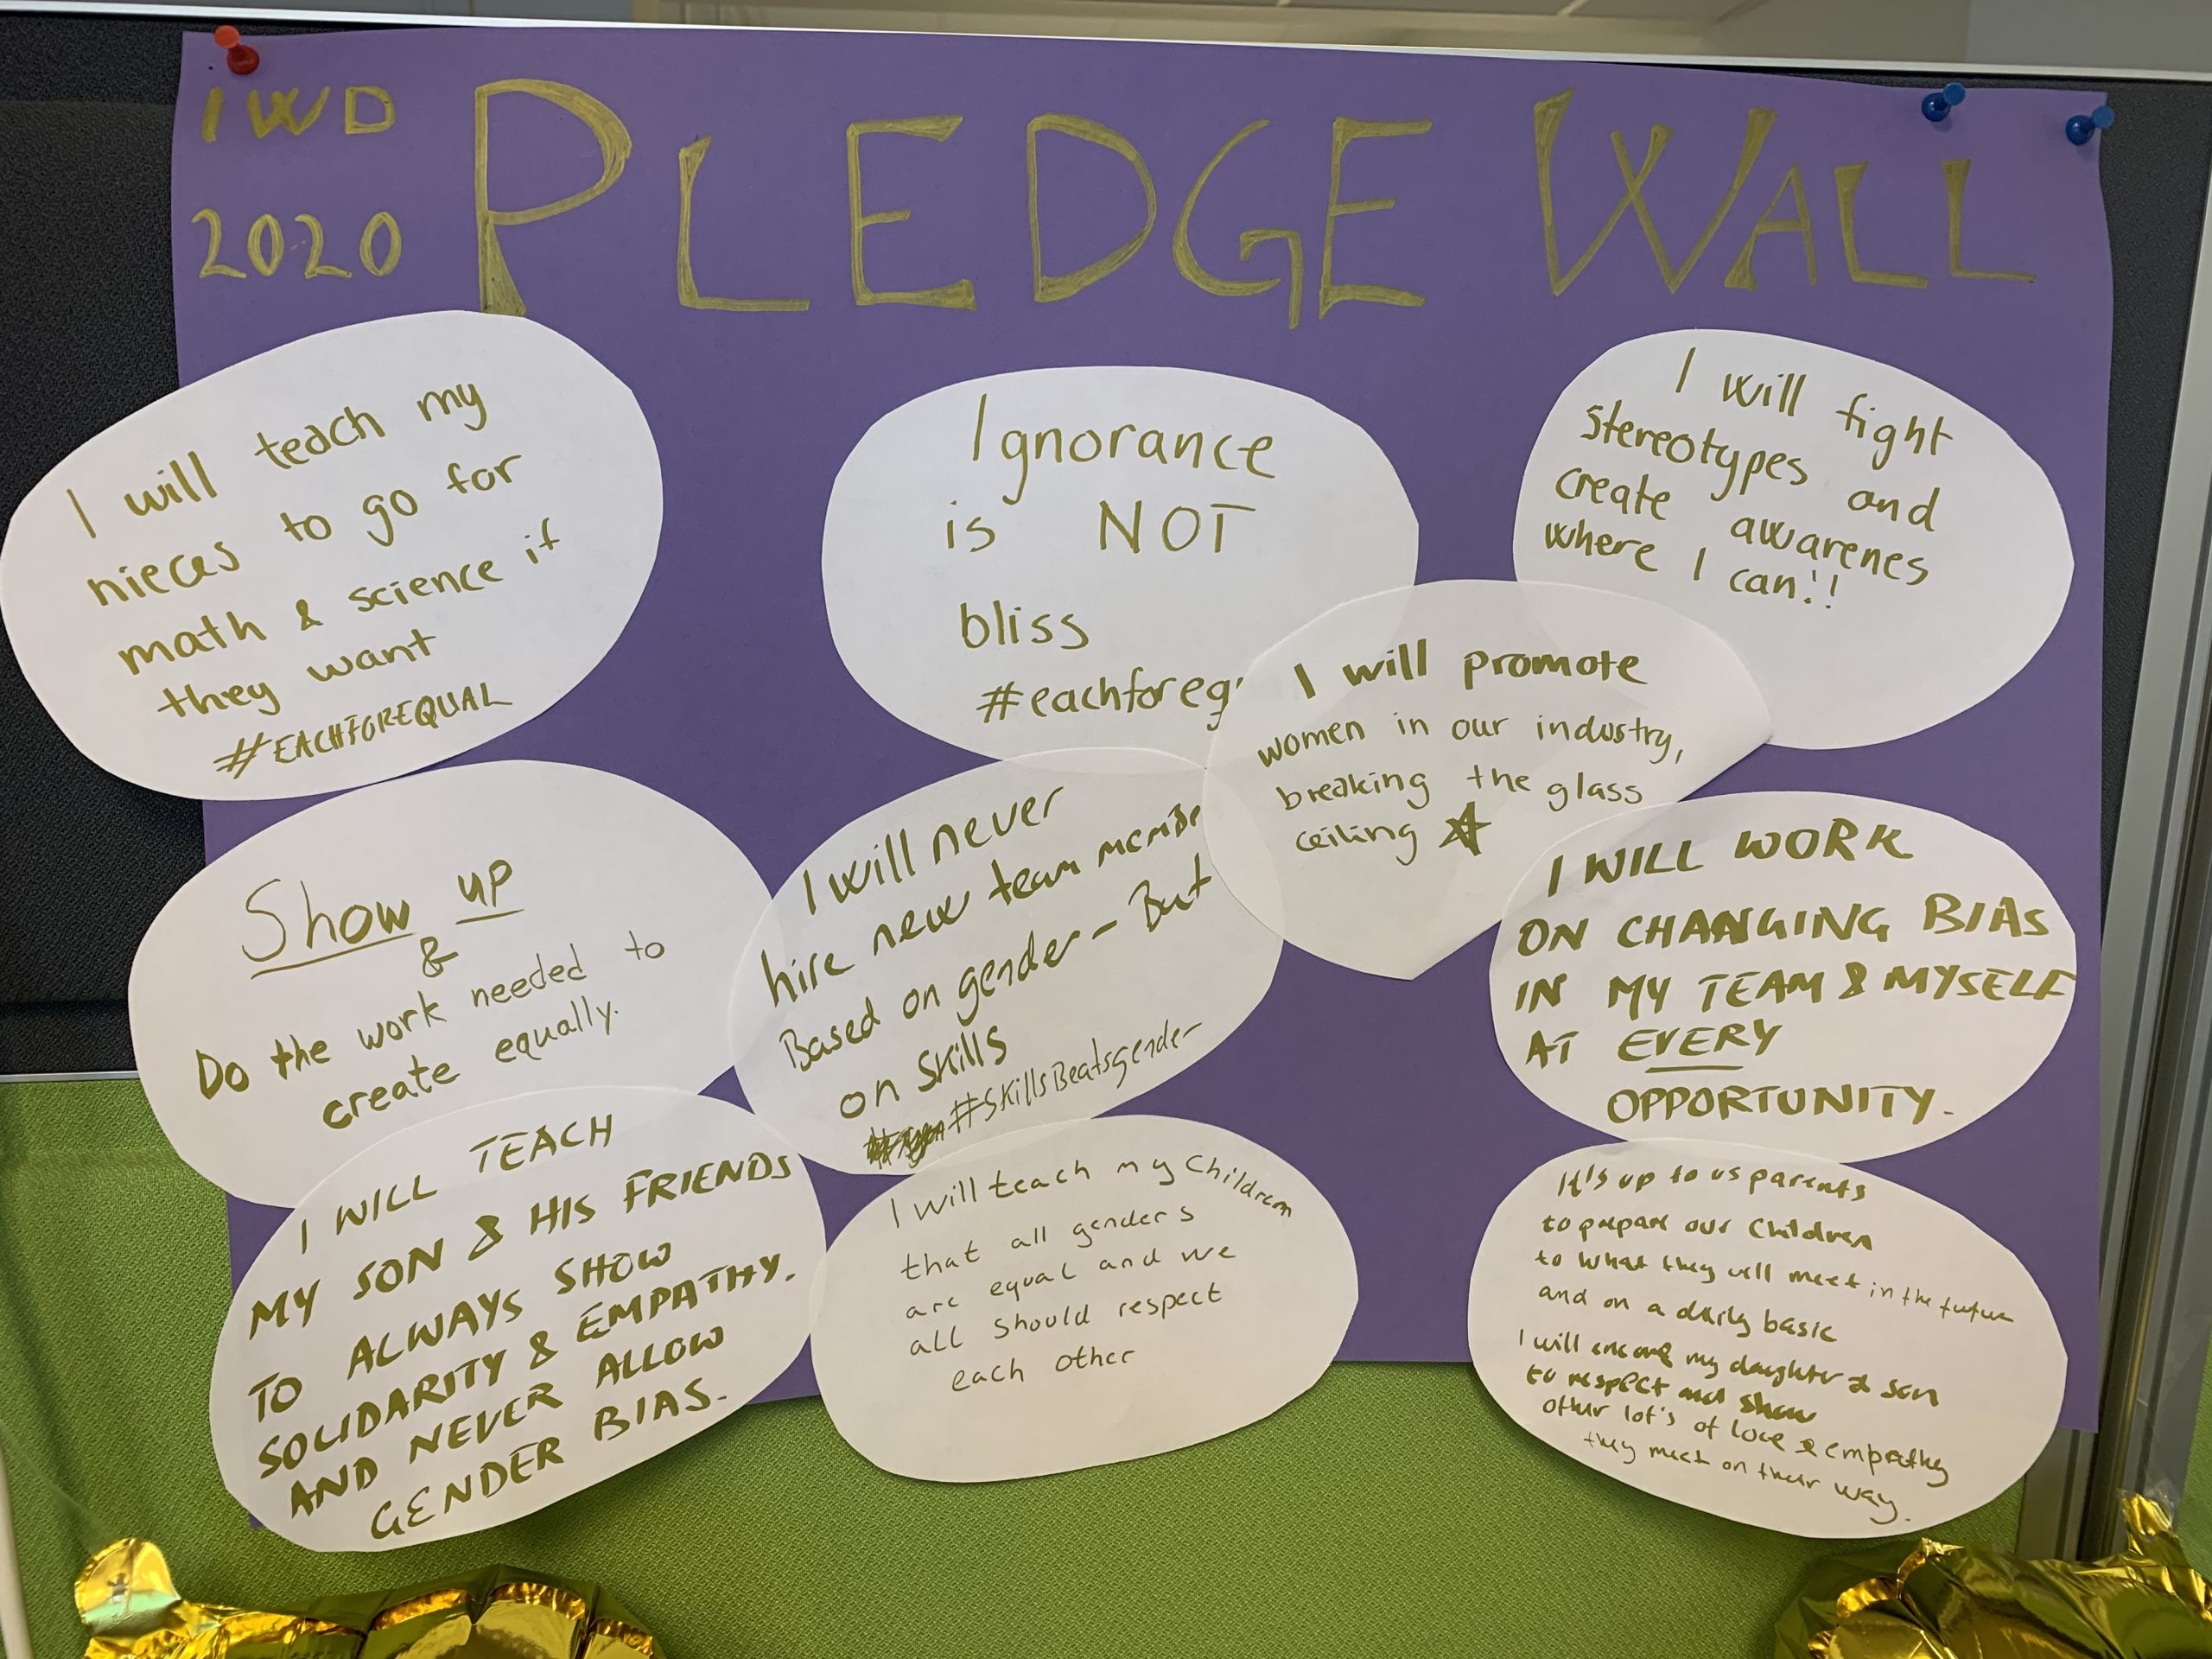 IWD
2020
PLEDGE WALL
I will teach my
nieces to go for
math & science if
they want
#EACHFOREQUAL
Ignorance
is NOT
bliss
#eachforeq
I will fight
stereotypes and
create awarenes
where I can!!
I will promote
women in our industry,
breaking the glass
ceiling
Show up
&
Do the work needed to
create equally.
I will never
hire new team membe
Based on gender - But
on skills
#SkillsBeatsgender
I WILL WORK
ON CHANGING BIAS
IN MY TEAM & MYSELF
AT EVERY
OPPORTUNITY.
I WILL TEACH
MY SON & HIS FRIENDS
TO ALWAYS SHOW
SOLIDARITY & EMPATHY.
AND NEVER ALLOW
GENDER BIAS.
I will teach my Children
that all genders
are equal and we
all should respect
each other
It's up to us parents
to prepare our Children
to what they will meet in the future
and on a daily basic
I will my daughter & son
to respect and show
other lot's of love & empathy
they meet on their way.